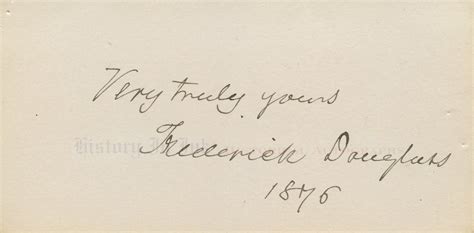 Very truly yours
Frederick Douglass
1876